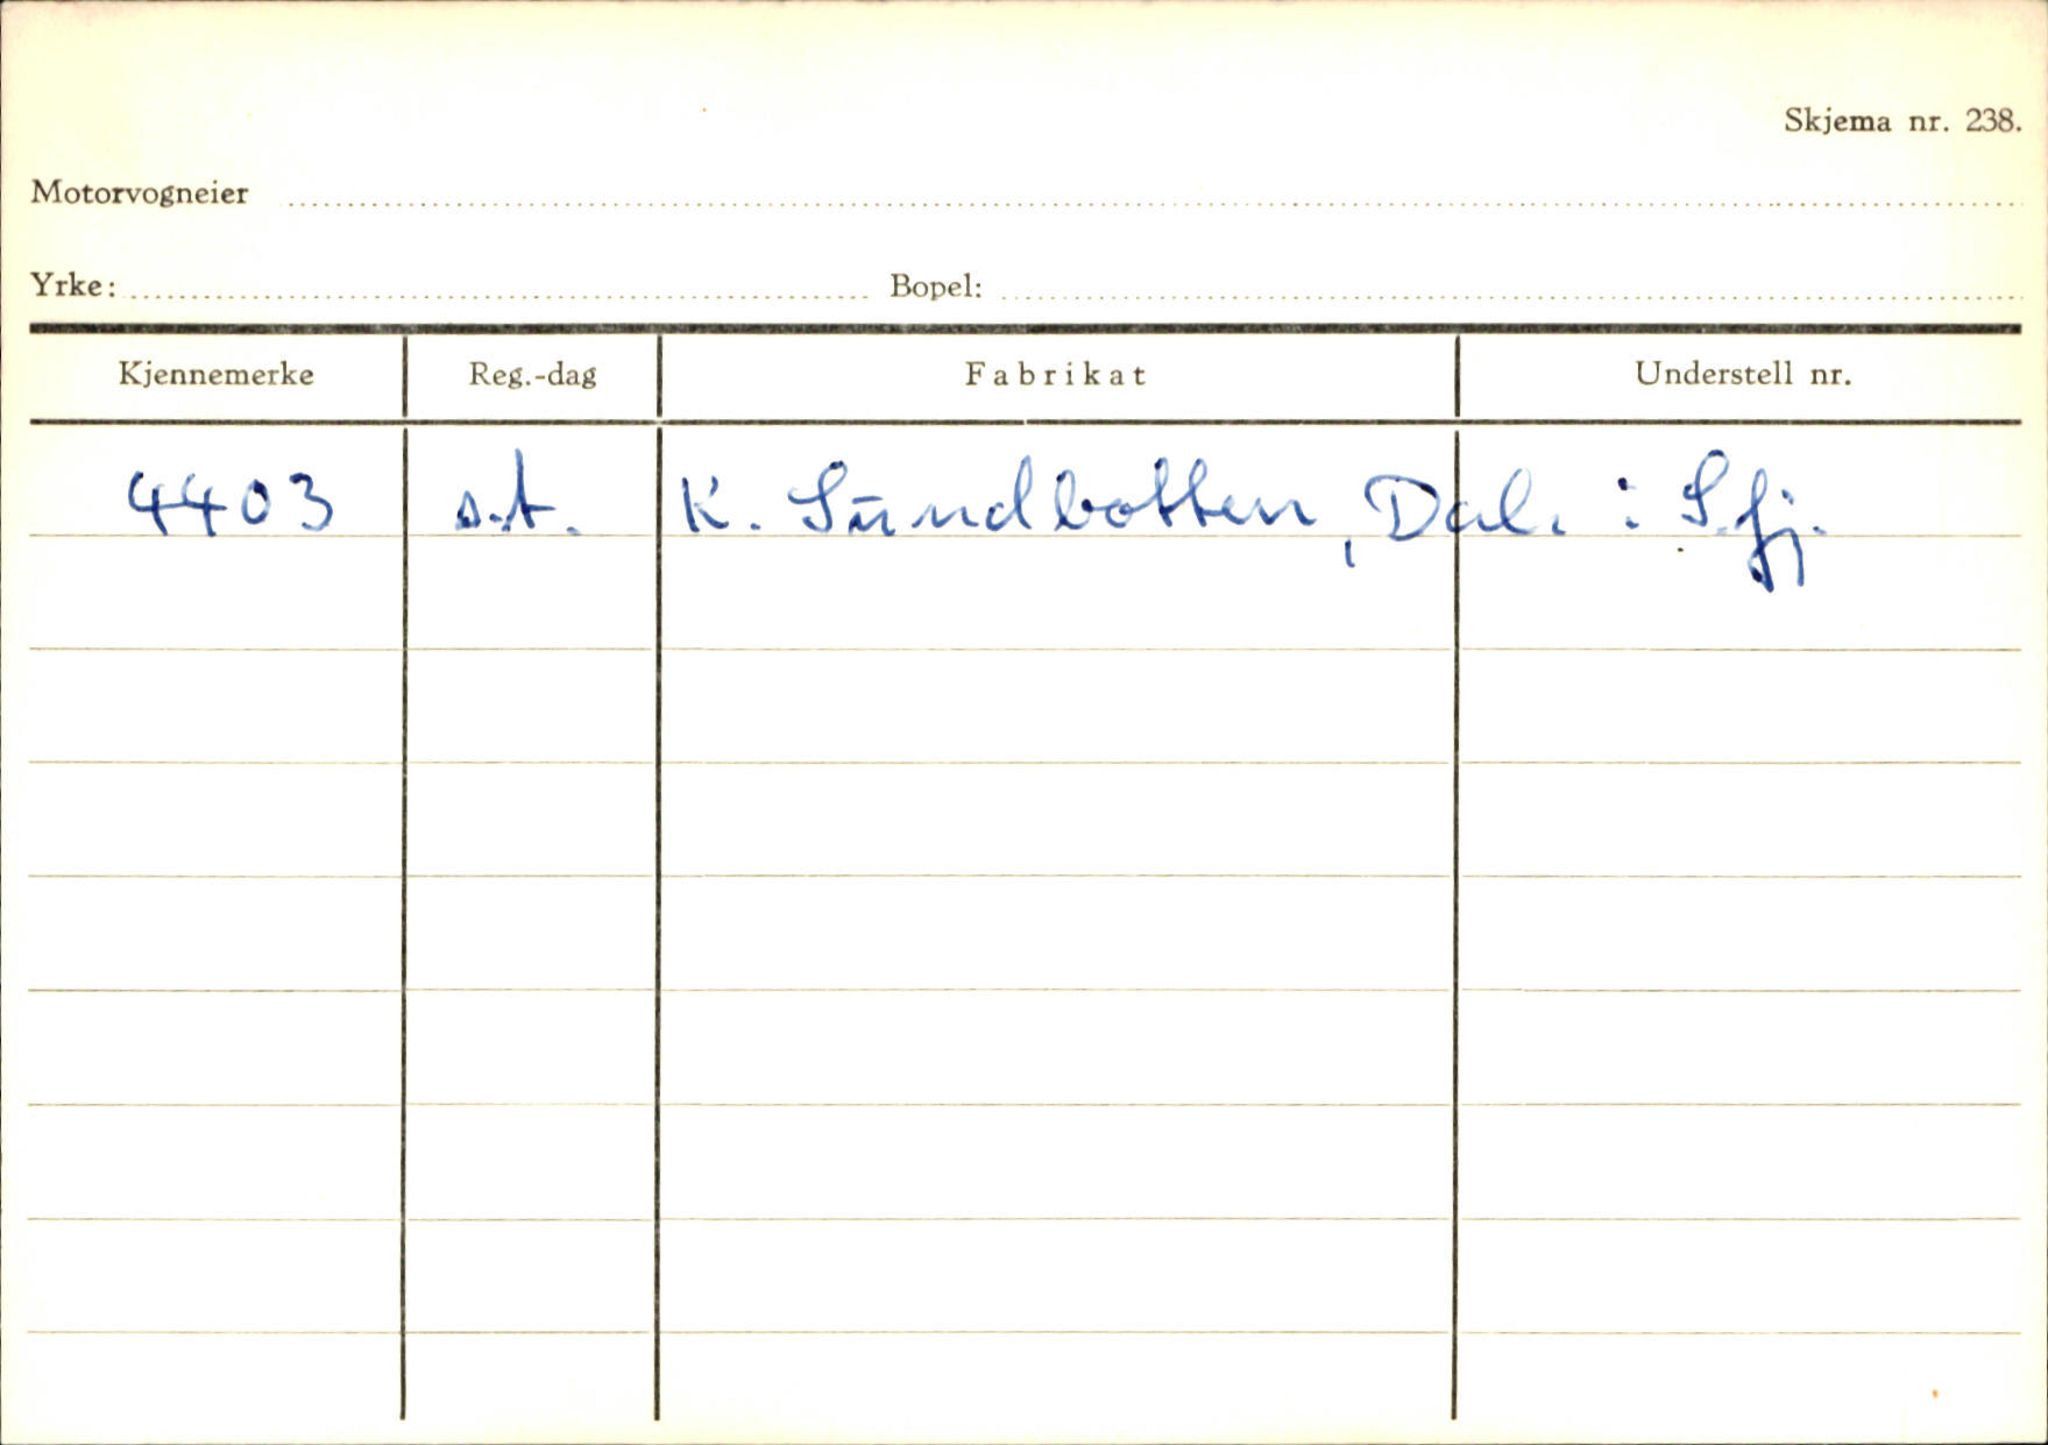 Skjema nr. 238.
Motorvogneier
Yrke: Bopel:
Kjennemerke Reg.-dag Fabrikat Understell nr.
4403 s.t. K. Sundbotten, Dal. i S.fj.